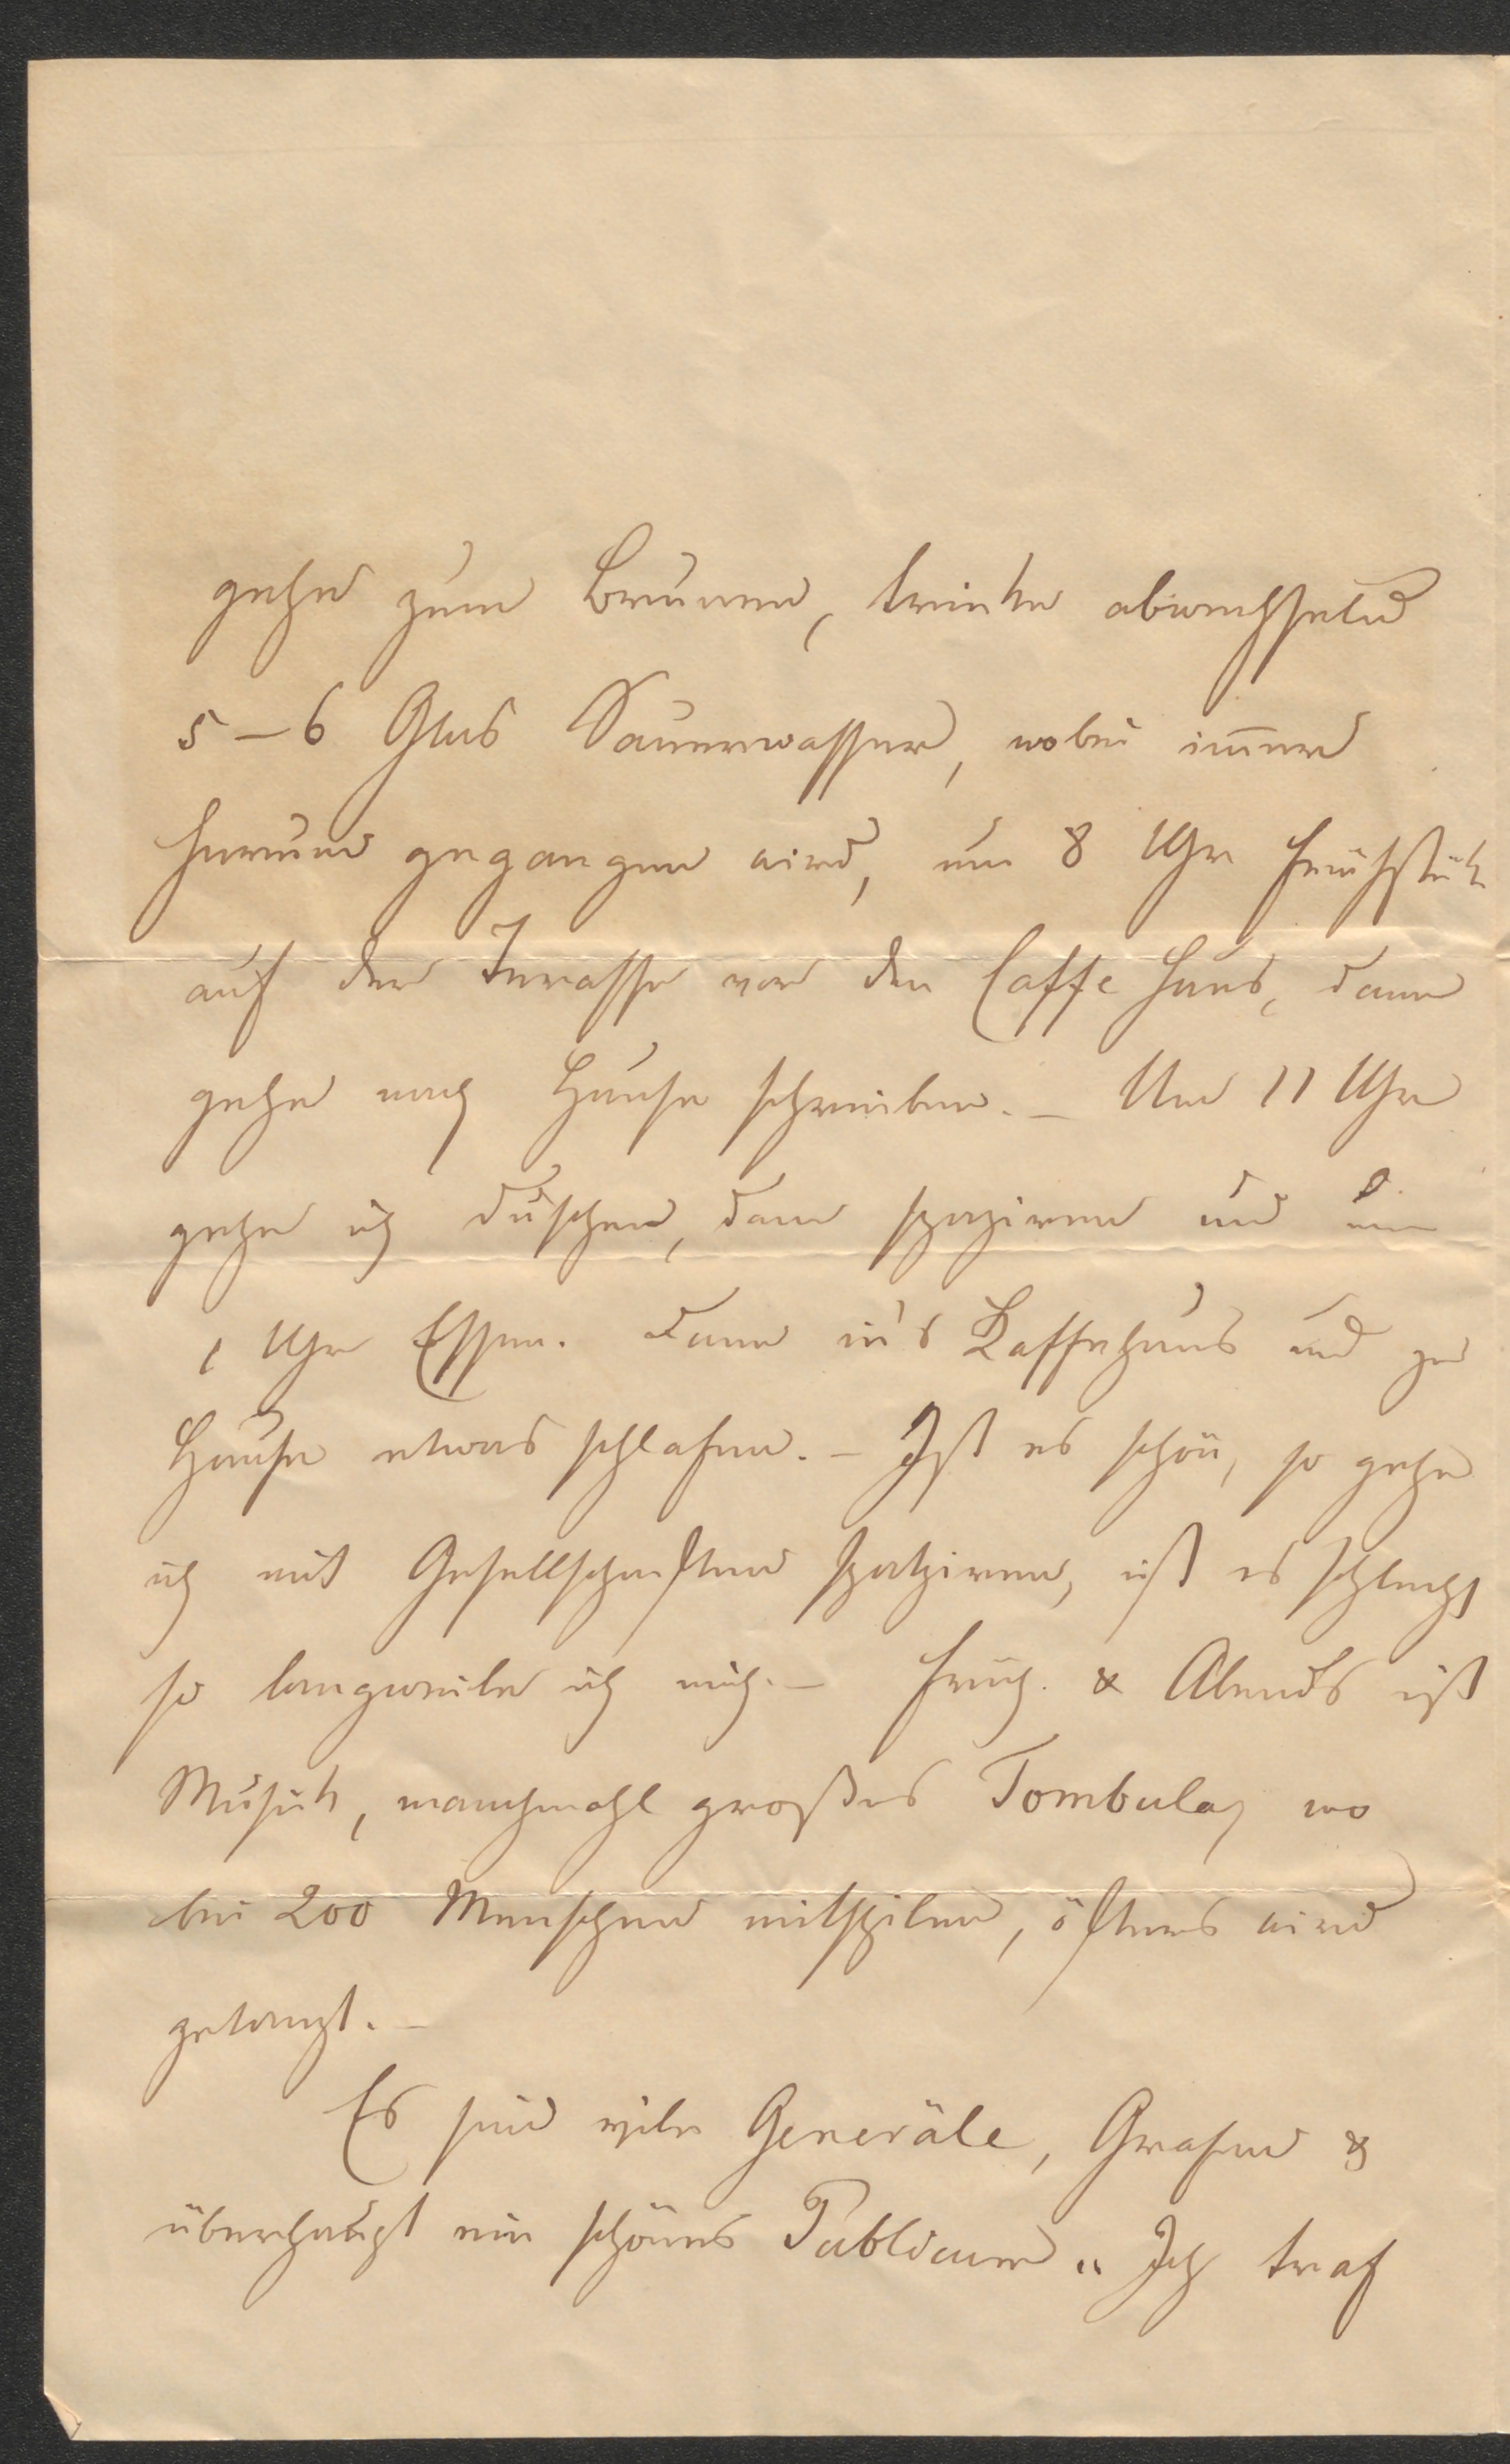 gehe zum Brunnen, trinke abwechselnd
5–6 Glas Sauerwasser, wobei im̅er
herum gegangen wird, um 8 Uhr Frühstük
auf der Terrasse vor den Caffe Haus, dann
gehe nach Hause schreiben. – Um 11 Uhr
gehe ich duschen, dann spaziren und um
1 Uhr Essen. Dann in's Kaffehaus und zu
Hause etwas schlafen. – Ist es schön, so gehe
ich mit Gesellschaften spatziren, ist es schlecht
so langweile ich mich. – Früh. & Abends ist
Musik, manchmahl großes Tombula, wo
bei 200 Menschen mitspilen, öfters wird
getanzt. –
Es sind viele Generäle, Grafen &
überhaupt ein schönes Publicum. Ich traf